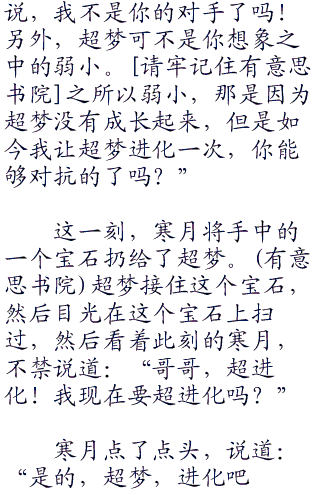 说，我不是你的对手了吗！
另外，超梦可不是你想象之
中的弱小。[请牢记住有意思
书院]之所以弱小，那是因为
超梦没有成长起来，但是如
今我让超梦进化一次，你能
够对抗的了吗？”
这一刻，寒月将手中的
一个宝石扔给了超梦。(有意
思书院)超梦接住这个宝石，
然后目光在这个宝石上扫
过，然后看着此刻的寒月，
不禁说道：“哥哥，超进
化！我现在要超进化吗？”
寒月点了点头，说道：
“是的，超梦，进化吧